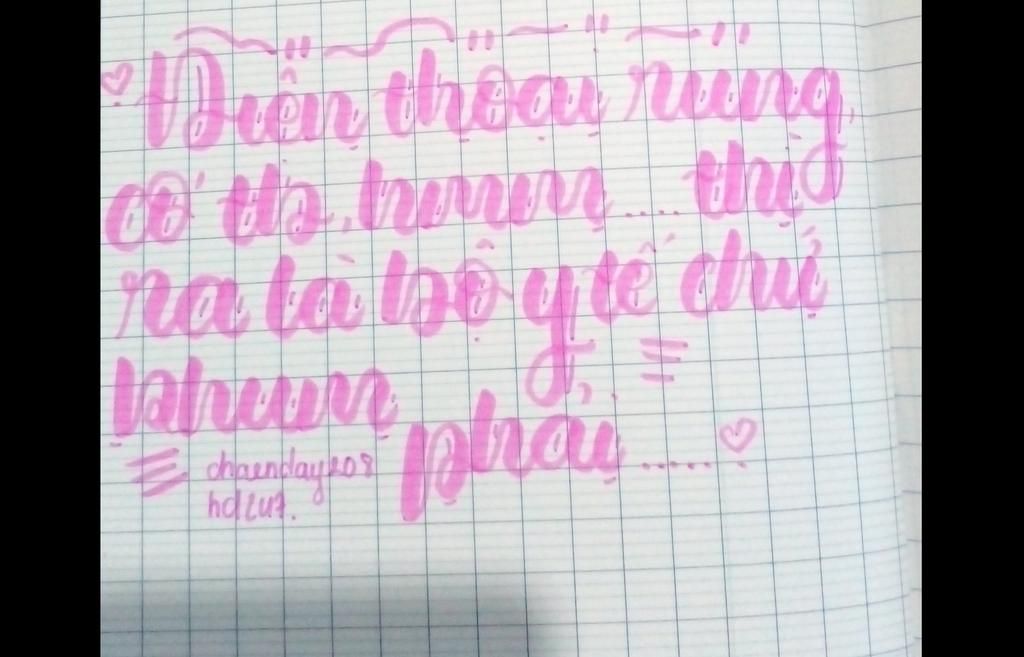 Điện thoại rung,
cớ tà, hưum.... thì
ra là bộ y tế chứ
khum
phải.....
chaenday208
hd247.